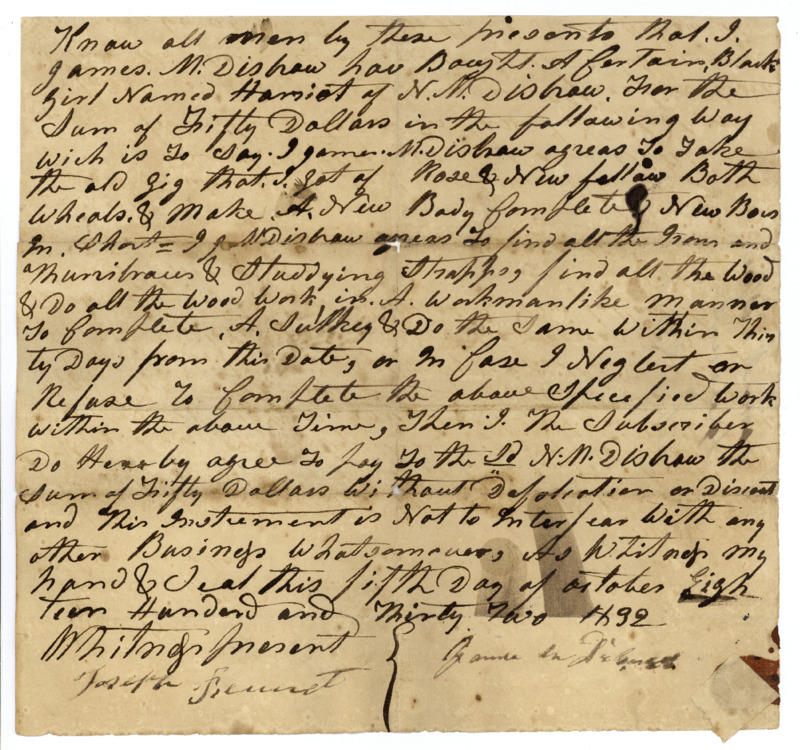 Know all men by these presents that. I.
James. M. Disbrow hav Bought. A Certain, Black
Girl Named Harriot of N. M. Disbrow, For the
Sum of Fifty Dollars in the following Way
wich is To Say. I James. M. Disbrow agreas To Take
the old Gig that. I. got of Rose & New fellow Both
Wheals, & Make A, New Body Complete, & New Bows
In. Short = I J. M Disbrow agreas To find all the Irons and
& Studdying Strapps, find all the Wood
& Do all the Wood Work in. A. Workmanlike manner
To Complete, A, Sulkey & Do the Same Within Thir
ty Days from this Date, or In Case I Neglect or
Refuse To Complete the above Specified Work
Within the above Time, Then I. The Subscriber
Do Hereby agree To pay To the Sd N. M. Disbrow the
Sum of Fifty Dollars Without Defolcation or Discont
and This Instrement is Not to Interfear With any
other Busingss Whatsomever, As Whitngss my
hand & Seal this fifth Day of october Eigh
teen Hunderd and Thirty Two 1832
Whitngss present
James M Disbrow
Joseph